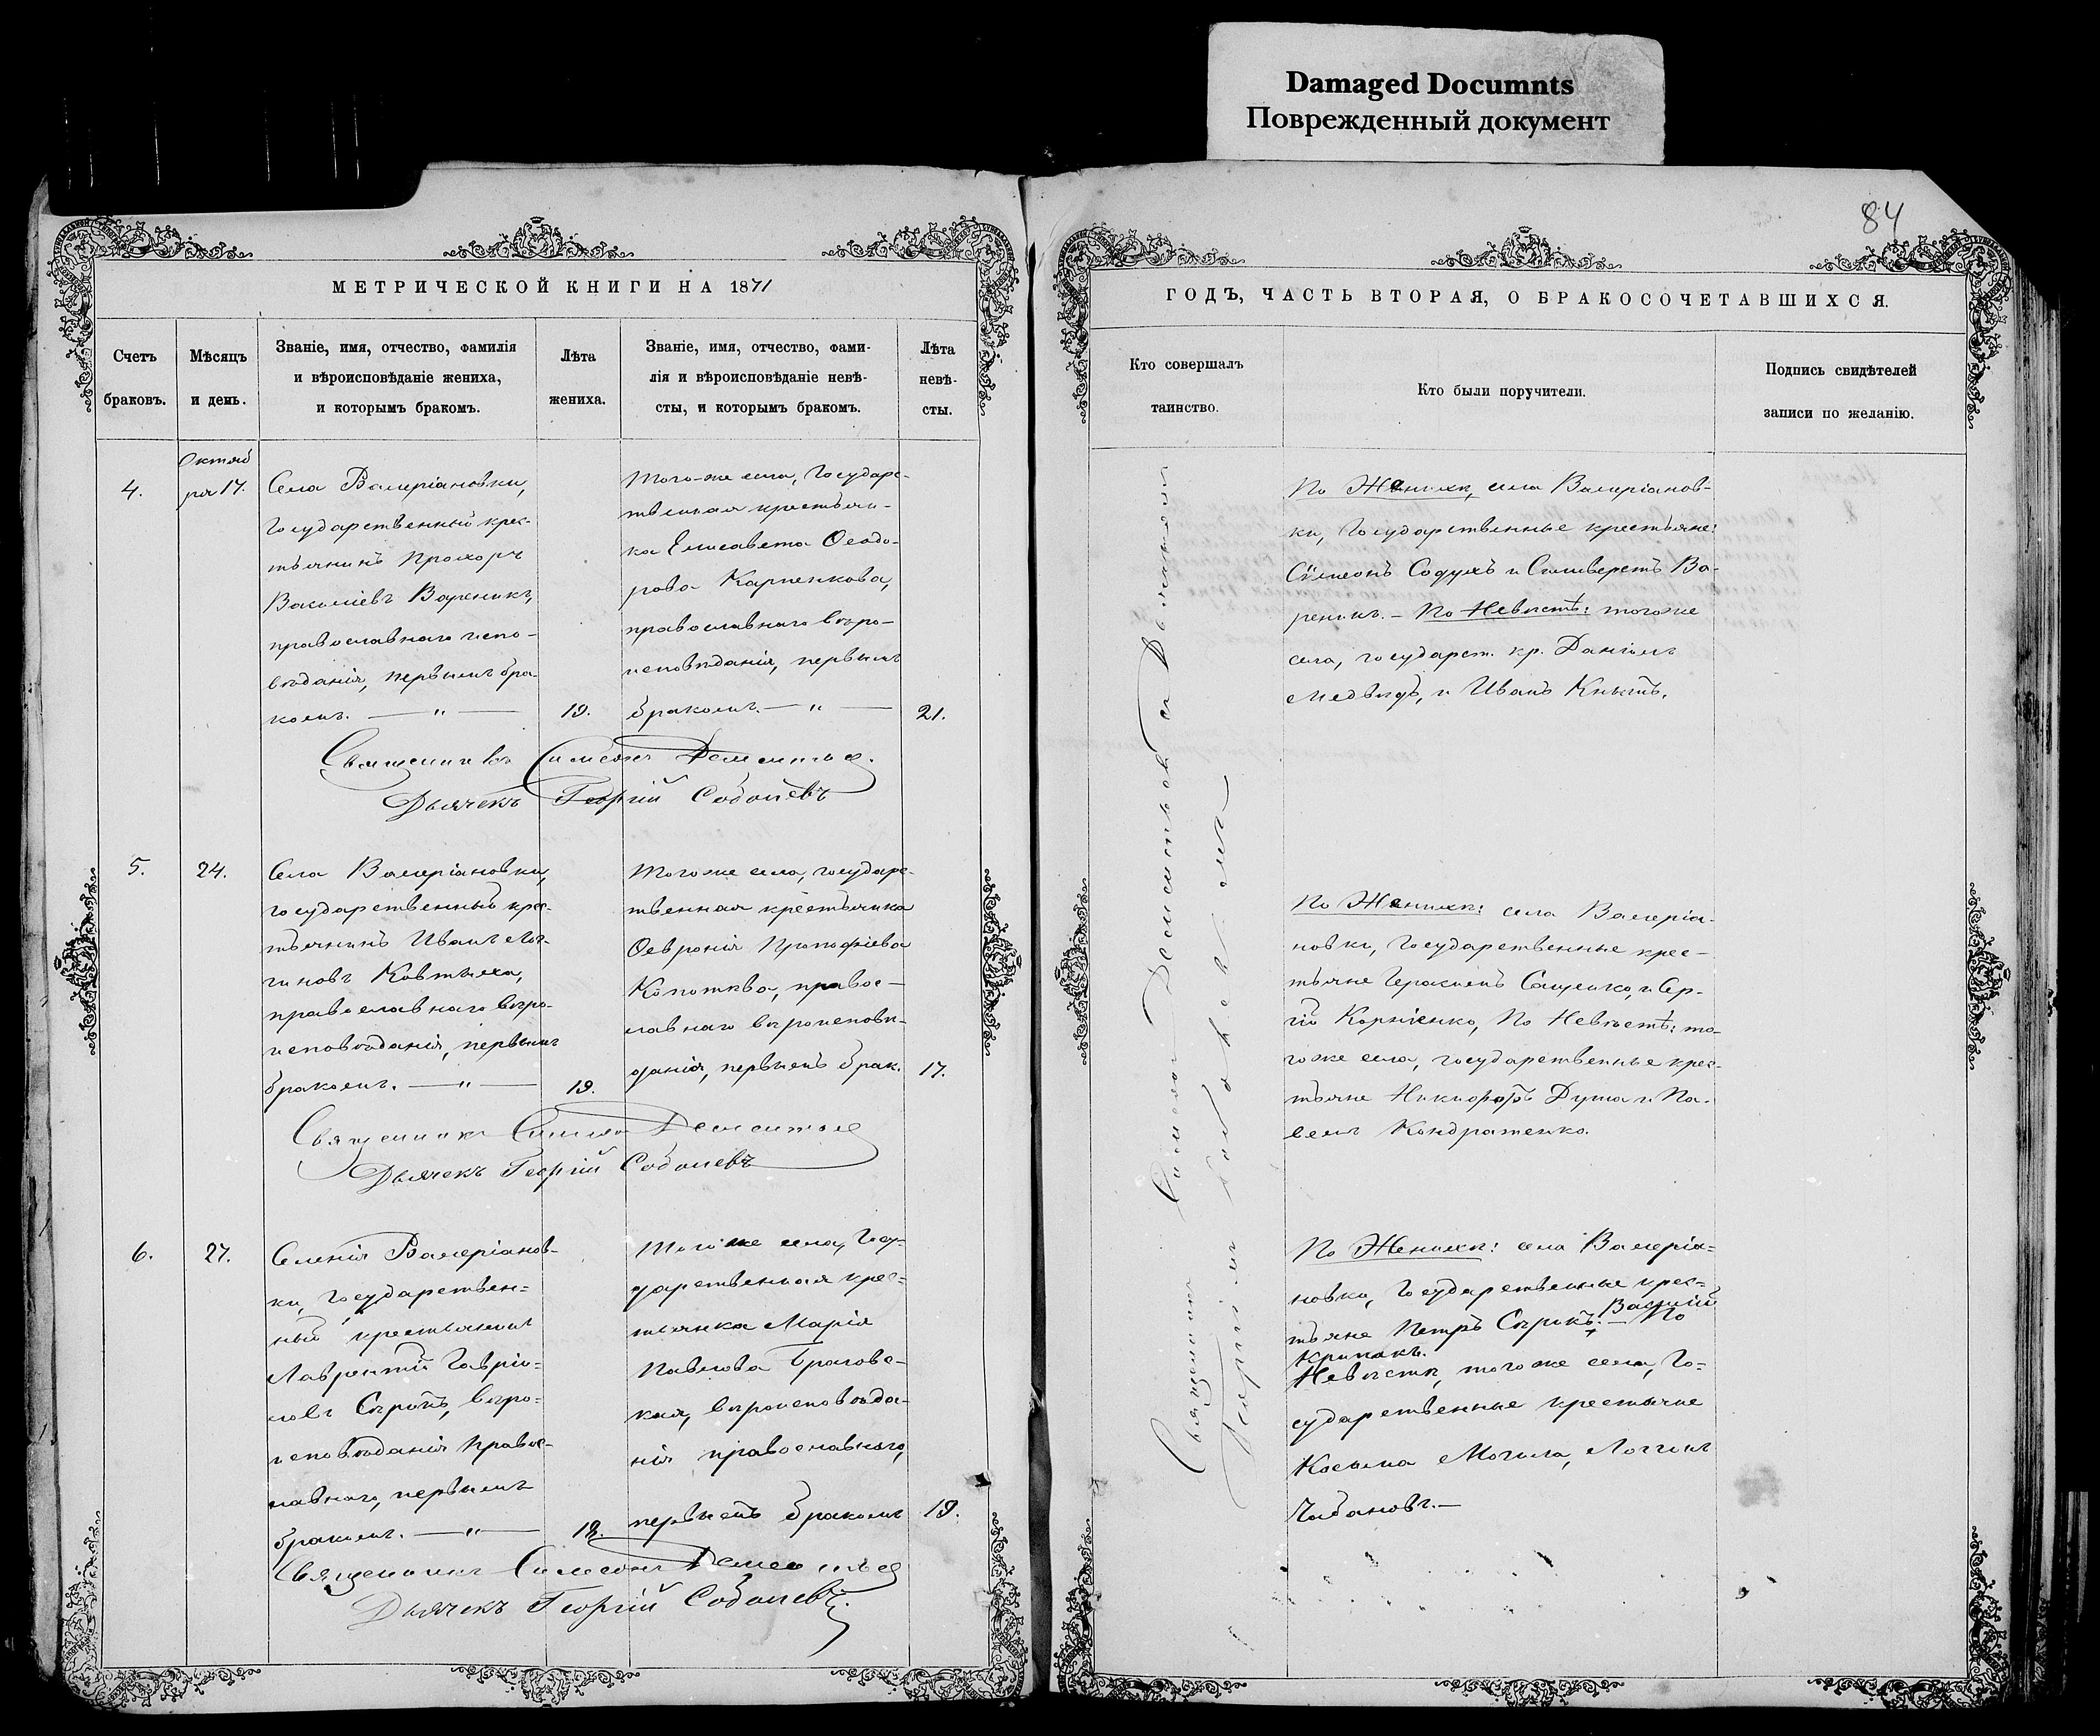 Damaged Documnts
Поврежденный документ
84
МЕТРИЧЕСКОЙ КНИГИ НА 1871
Счетъ
браковъ.
Мѣсяцъ
и день.
Званіе, имя, отчество, фамилія
и вѣроисповѣданіе жениха,
и которымъ бракомъ.
Лѣта
жениха.
Званіе, имя, отчество, фами-
лія и вѣроисповѣданіе невѣ-
сты, и которымъ бракомъ.
Лѣта
невѣ-
сты.
4.
Октяб
ря 17.
Села Валеріановки,
Государственный крес-
тьянинъ Прохоръ
Василіевъ Вареникъ,
православнаго испо-
вѣданія, первымъ бра-
комъ. — „ —
19.
Того-же села, Государс-
твенная крестьян-
ка Елисавета Ѳеодо-
рова Карпенкова,
православнаго вѣро-
исповѣданія, первымъ
бракомъ. — „ —
21.
Священникъ Симеонъ Дементьев
Дьячекъ Георгій Соболевъ
5.
24.
Села Валеріановки,
государственный крес-
тьянинъ Иванъ Лог-
гиновъ
православнаго вѣро-
исповѣданія, первымъ
бракомъ. — „ —
19.
Того же села, государс-
твенная крестьянка
Ѳевронія Прокофіева
правос-
лавнаго вѣроисповѣ-
данія, первымъ брак.
17.
Священникъ Симеонъ Дементьев
Дьячекъ Георгій Соболевъ
6.
27.
Селенія Валеріанов-
ки, Государствен-
ный крестьянинъ
Лаврентій Гавріи-
ловъ Сѣрикъ, вѣро-
исповѣданія правос-
лавнаго, первымъ
бракомъ. — „ —
18.
Того же села, Госу-
дарственная крес-
тьянка Марія
Павлова
вѣроисповѣда-
нія православнаго,
первымъ бракомъ
19.
Священникъ Симеонъ Дементьев
Дьячекъ Георгій Соболевъ
ГОДЪ, ЧАСТЬ ВТОРАЯ, О БРАКОСОЧЕТАВШИХСЯ.
Кто совершалъ
таинство.
Кто были поручители.
Подпись свидѣтелей
записи по желанію.
Священникъ Симеонъ Дементьевъ съ Дьячкомъ
Георгіемъ Соболевымъ
По Женихѣ, села Валеріанов-
ки, Государственные крестьяне:
Сѵмеонъ и Силиверстъ Ва-
реникъ. — По Невѣстѣ: того же
села, государст. кр. Даніилъ
Медвидь, и Иванъ
По Женихѣ: села Валеріа-
новки, Государственные крес-
тьяне Герасимъ Сащенко, и Сер-
гій Корніенко, По Невѣстѣ: то-
го же села, государственные крес-
тьяне Никифоръ и Па-
велъ Кондратенко.
По Женихѣ: села Валеріа-
новки, Государственные крес-
тьяне Петръ Сѣрикъ: Василій — По
Крипакъ.
Невѣстѣ, того же села, Го-
сударственные крестьяне
Косьма Могила, Логгинъ
Чабановъ. —